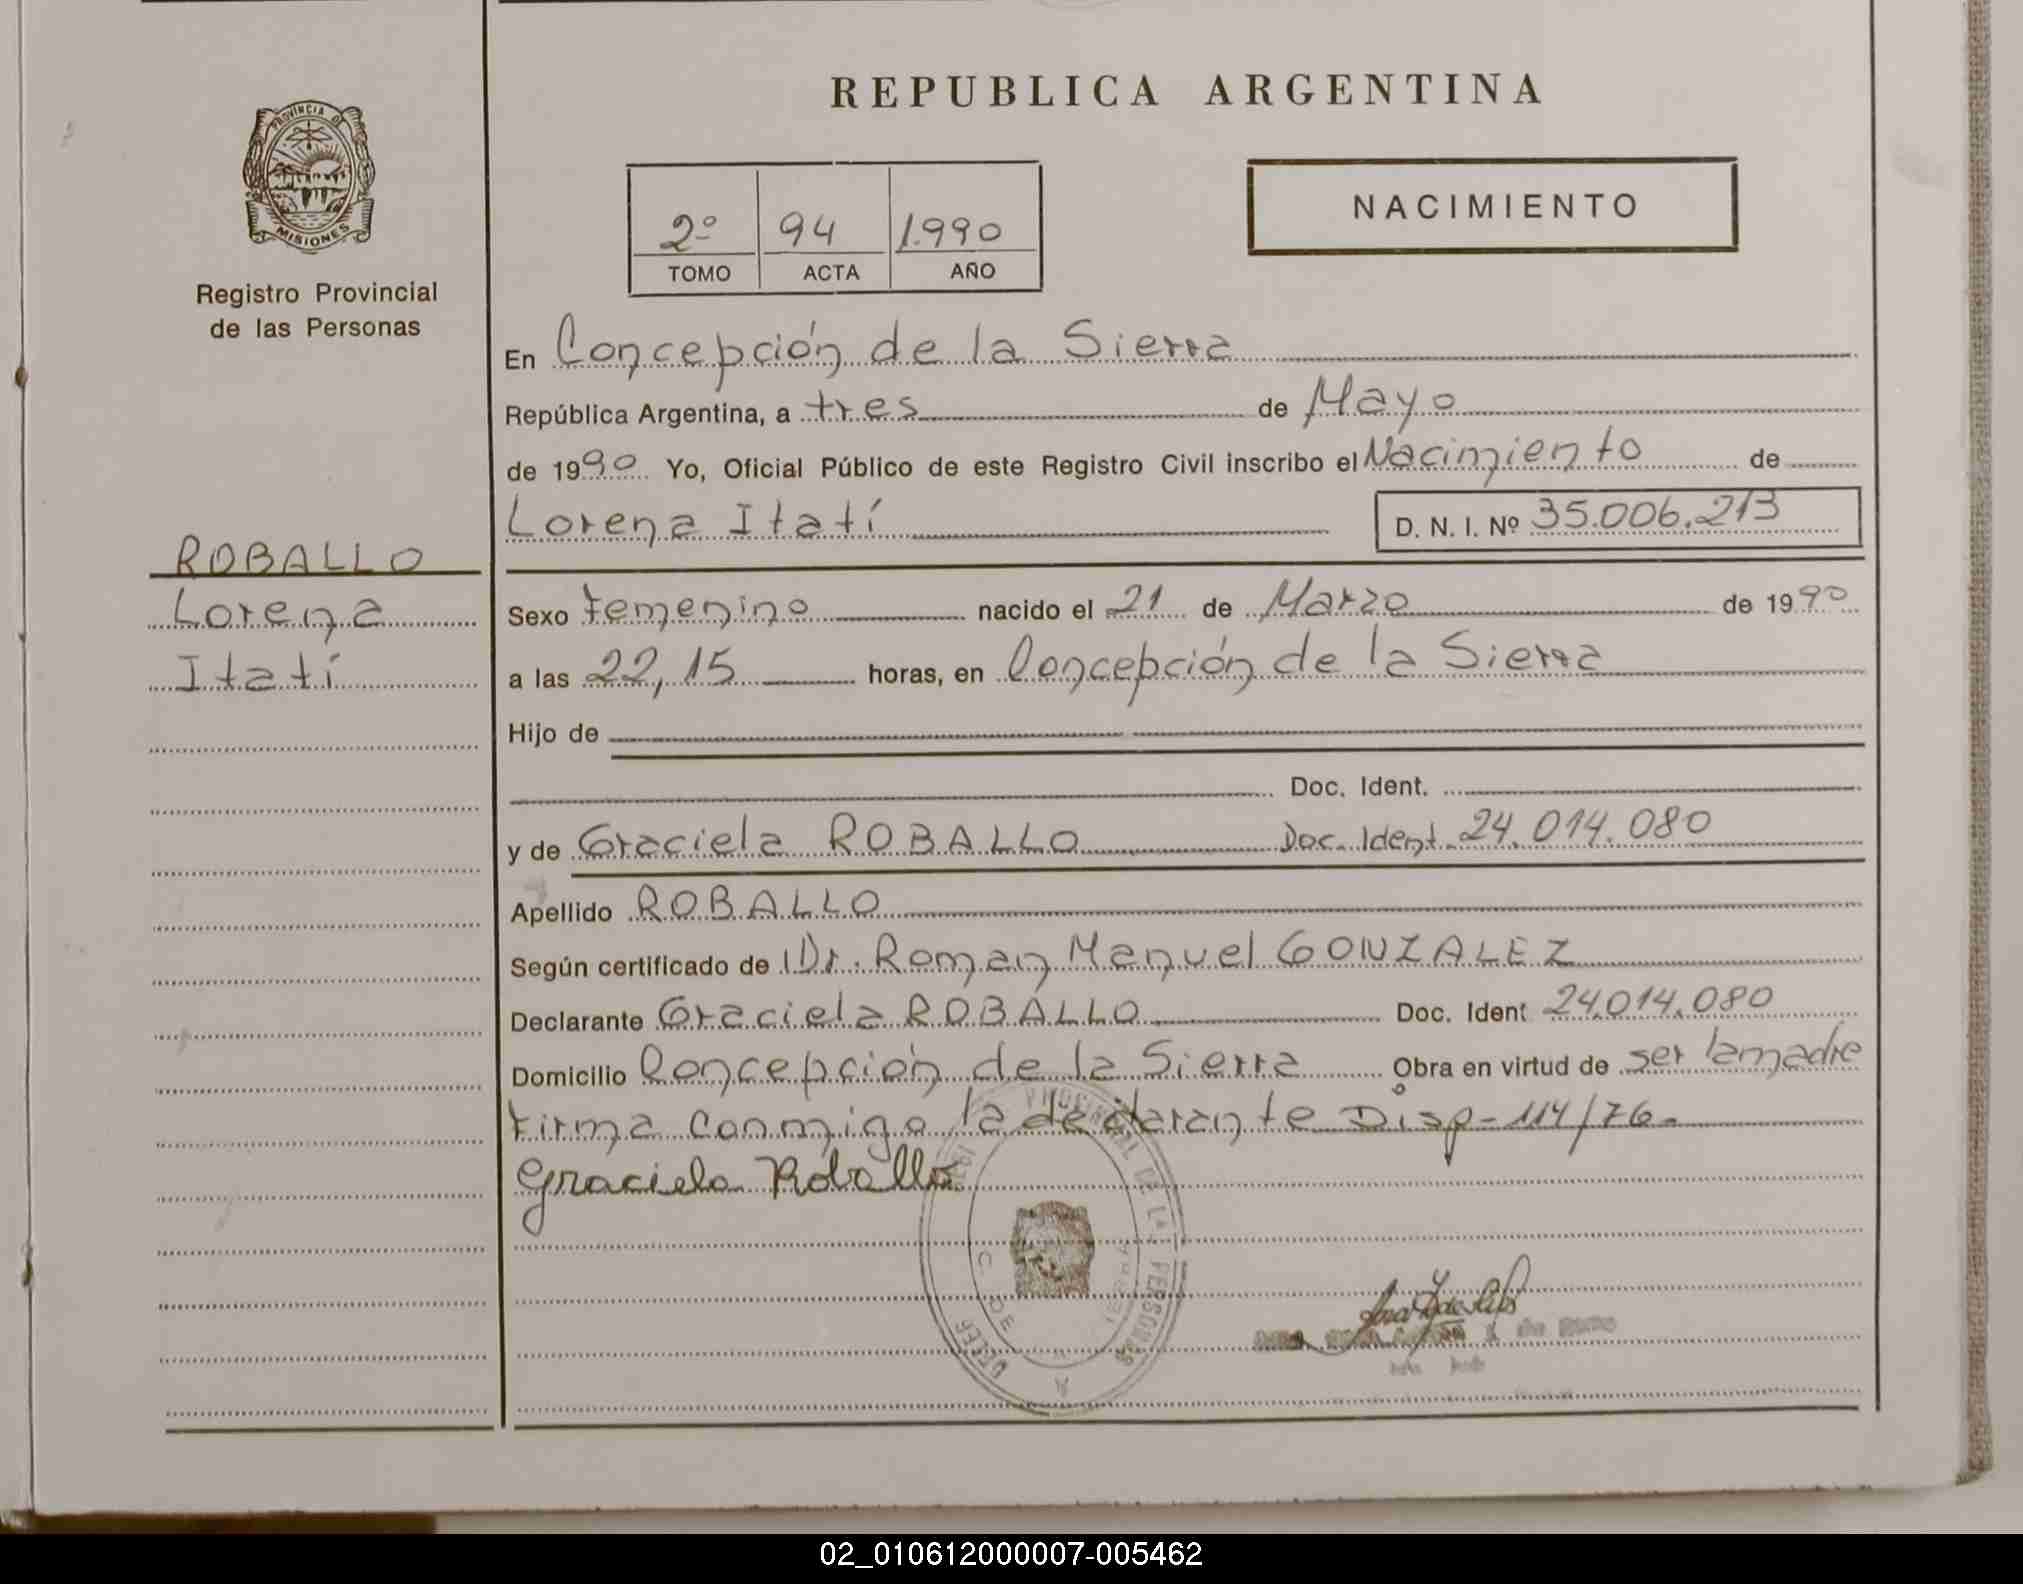 REPUBLICA ARGENTINA
PROVINCIA DE
MISIONES
Registro Provincial
de las Personas
2º 94 1.990
TOMO ACTA AÑO
NACIMIENTO
En Concepción de la Sierra
República Argentina, a tres de Mayo
de 1990 Yo, Oficial Público de este Registro Civil inscribo el Nacimiento de
Lorena Itatí D. N. I. Nº 35.006.213
ROBALLO
Lorena
Itatí
Sexo Femenino nacido el 21 de Marzo de 1990
a las 22,15 horas, en Concepción de la Sierra
Hijo de
Doc. Ident.
y de Graciela ROBALLO Doc. Ident. 24.014.080
Apellido ROBALLO
Según certificado de Dr. Roman Manuel GONZALEZ
Declarante Graciela ROBALLO Doc. Ident 24.014.080
Domicilio Concepción de la Sierra Obra en virtud de ser la madre
Firma conmigo la declarante Disp- 114/76.
Graciela Roballo
DE LAS PERSONAS
02_010612000007-005462